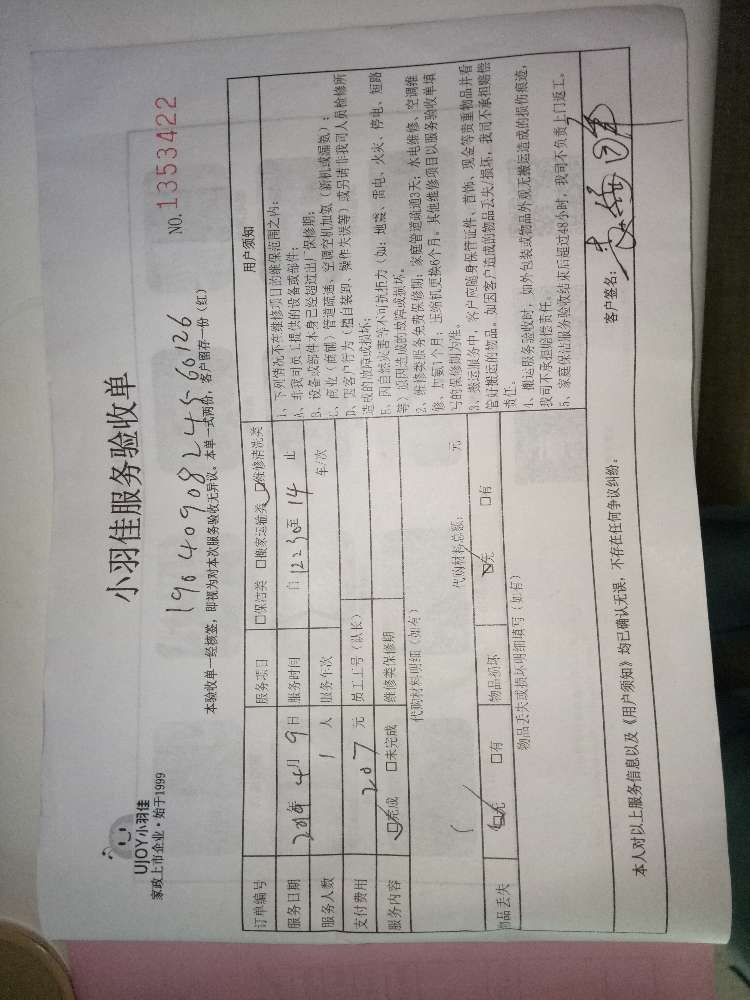 UJOY小羽佳
家政上市企业·始于1999
小羽佳服务验收单
NO.1353422
1904090824560126
本验收单一经核签，即视为对本次服务验收无异议。本单一式两份，客户留存一份（红）
订单编号 服务项目 □保洁类 □搬家运输类 □维修清洗类 用户须知
服务日期 2019年4月9日 服务时间 自12:30至14止
服务人数 1人 服务车次 车/次
支付费用 207元 员工工号（队长）
服务内容 □完成 □未完成 维修类保修期
代购材料明细（如有）
代购材料总额： 元
物品丢失 □无 □有 物品损坏 □无 □有
物品丢失或损坏明细填写（如有）
1、下列情况不在维修项目的维保范围之内：
A、非我司员工提供的设备或部件；
B、设备或部件本身已经超过出厂保修期；
C、商业（商铺）管道疏通、空调空机加氨（新机或漏氨）；
D、因客户行为（擅自装卸、操作失误等）或另请非我司人员检修所
造成的故障或损坏；
E、因自然灾害等不可抗拒力（如：地震、雷电、火灾、停电、短路
等）原因造成的故障或损坏。
2、维修类服务免费保修期：家庭管道疏通3天；水电维修、空调维
修、加氨1个月；压缩机更换6个月。其他维修项目以服务验收单填
写的保修期为准。
3、搬运服务中，客户应随身保管证件、首饰、现金等贵重物品并看
管好搬运的物品。如因客户造成的物品丢失/损坏，我司不承担赔偿
责任。
4、搬运服务验收时，如外包装或物品外观无搬运造成的损伤痕迹，
我司不承担赔偿责任。
5、家庭保洁服务验收结束后超过48小时，我司不负责上门返工。
本人对以上服务信息以及《用户须知》均已确认无误，不存在任何争议纠纷。
客户签名：